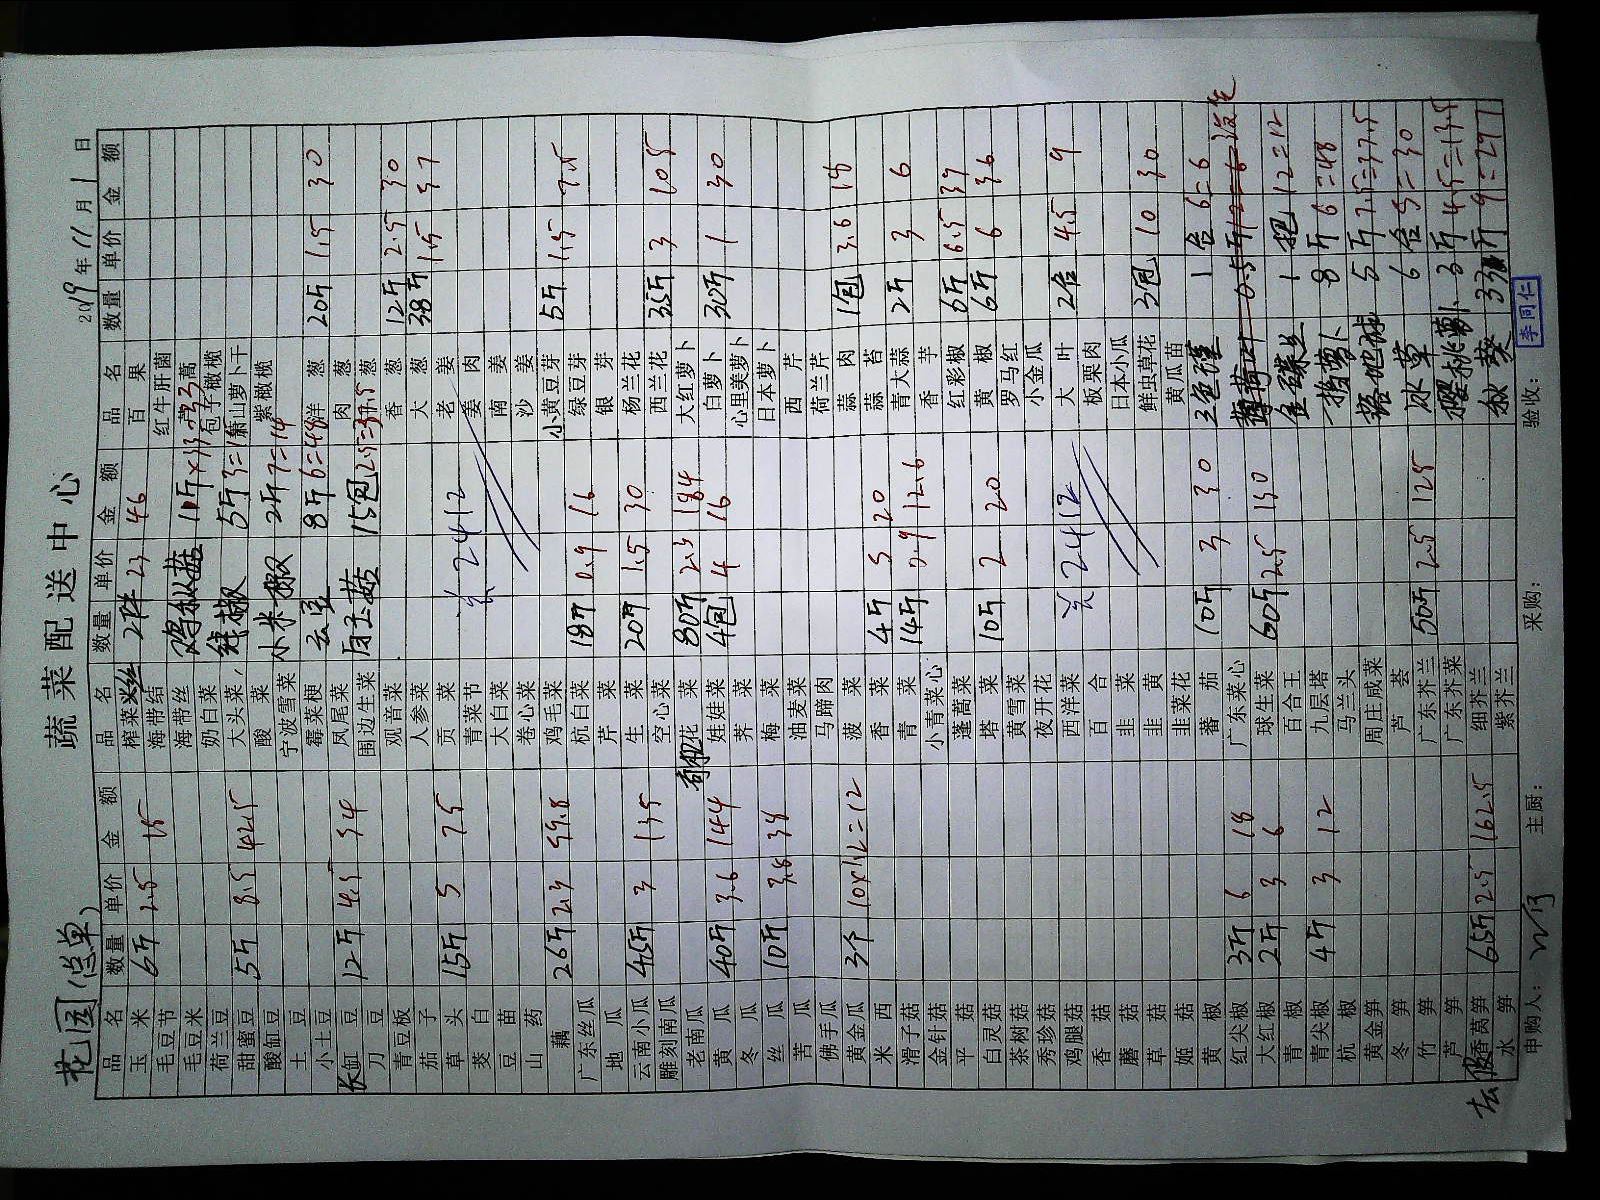 花园(总单)
蔬菜配送中心
2019年11月1日
品名 数量 单价 金额 品名 数量 单价 金额 品名 数量 单价 金额
玉米 6斤 2.5 15 榨菜丝 2件 23 46 百果
毛豆节 海带结 红牛肝菌
毛豆米 海带丝 鸡枞菇 11斤×13
荷兰豆 奶白菜 线椒 5斤 3=15 包子橄榄
甜蜜豆 5斤 8.5 42.5 大头菜 萧山萝卜干
酸缸豆 酸菜 小米椒 2斤 7=14 紫橄榄
土豆 宁波雪菜
小土豆 霉菜梗 云豆 8斤 6=48 洋葱 20斤 1.5 30
长缸豆 12斤 4.5 54 凤尾菜 肉葱
刀豆 围边生菜 白玉菇 15包 2.5=37.5 葱
青豆板 观音菜 香葱 12斤 2.5 30
茄子 人参菜 大葱 38斤 1.5 57
草头 15斤 5 75 贡菜 共2412 老姜
茭白 青菜节 姜肉
豆苗 大白菜 南姜
山药 卷心菜 沙姜
藕 26斤 2.3 59.8 鸡毛菜 小黄豆芽 5斤 1.5 7.5
广东丝瓜 杭白菜 18斤 0.9 16 绿豆芽
地瓜 芹菜 银芽
云南小瓜 45斤 3 135 生菜 20斤 1.5 30 杨兰花
雕刻南瓜 空心菜 西兰花 35斤 3 105
老南瓜 有机花菜 80斤 2.3 184 大红萝卜
黄瓜 40斤 3.6 144 娃娃菜 4包 4 16 白萝卜 30斤 1 30
冬瓜 荠菜 心里美萝卜
丝瓜 10斤 3.8 38 梅菜 日本萝卜
苦瓜 油麦菜 西芹
佛手瓜 马蹄肉 荷兰芹
黄金瓜 3个 10×1.2=12 菠菜 蒜肉 1包 3.6 18
米西 香菜 4斤 5 20 蒜苔
滑子菇 青菜 14斤 0.9 12.6 青大蒜 2斤 3 6
金针菇 小青菜心 香芋
平菇 蓬蒿菜 红彩椒 6斤 6.5 39
白灵菇 塔菜 10斤 2 20 黄椒 6斤 6 36
茶树菇 黄雪菜 罗马红
秀珍菇 夜开花 小金瓜
鸡腿菇 西洋菜 共2412 大叶 2 4.5 9
香菇 百合 板栗肉
蘑菇 韭菜 日本小瓜
草菇 韭黄 鲜虫草花 3包 10 30
姬菇 韭菜花 黄瓜苗
黄椒 蕃茄 10斤 3 30 三色堇 1盒 6=6
红尖椒 3斤 6 18 广东菜心 薄荷叶 0.5斤 12=6 没发
大红椒 2斤 3 6 球生菜 60斤 2.5 150 金碟丝 1把 12=12
青椒 百合王 一指萝卜 8斤 6=48
青尖椒 4斤 3 12 九层塔 5斤 7.5=37.5
杭椒 马兰头 冰草 6盒 5=30
黄金笋 周庄咸菜 樱桃萝卜 3斤 4.5=13.5
冬笋 芦荟 秋葵 33斤 9=297
竹笋 广东芥兰 50斤 2.5 125
芦笋 广东芥菜
去皮香莴笋 65斤 2.5 162.5 细芥兰
水笋 紫芥兰
申购人: 主厨: 采购: 验收: 李同仁